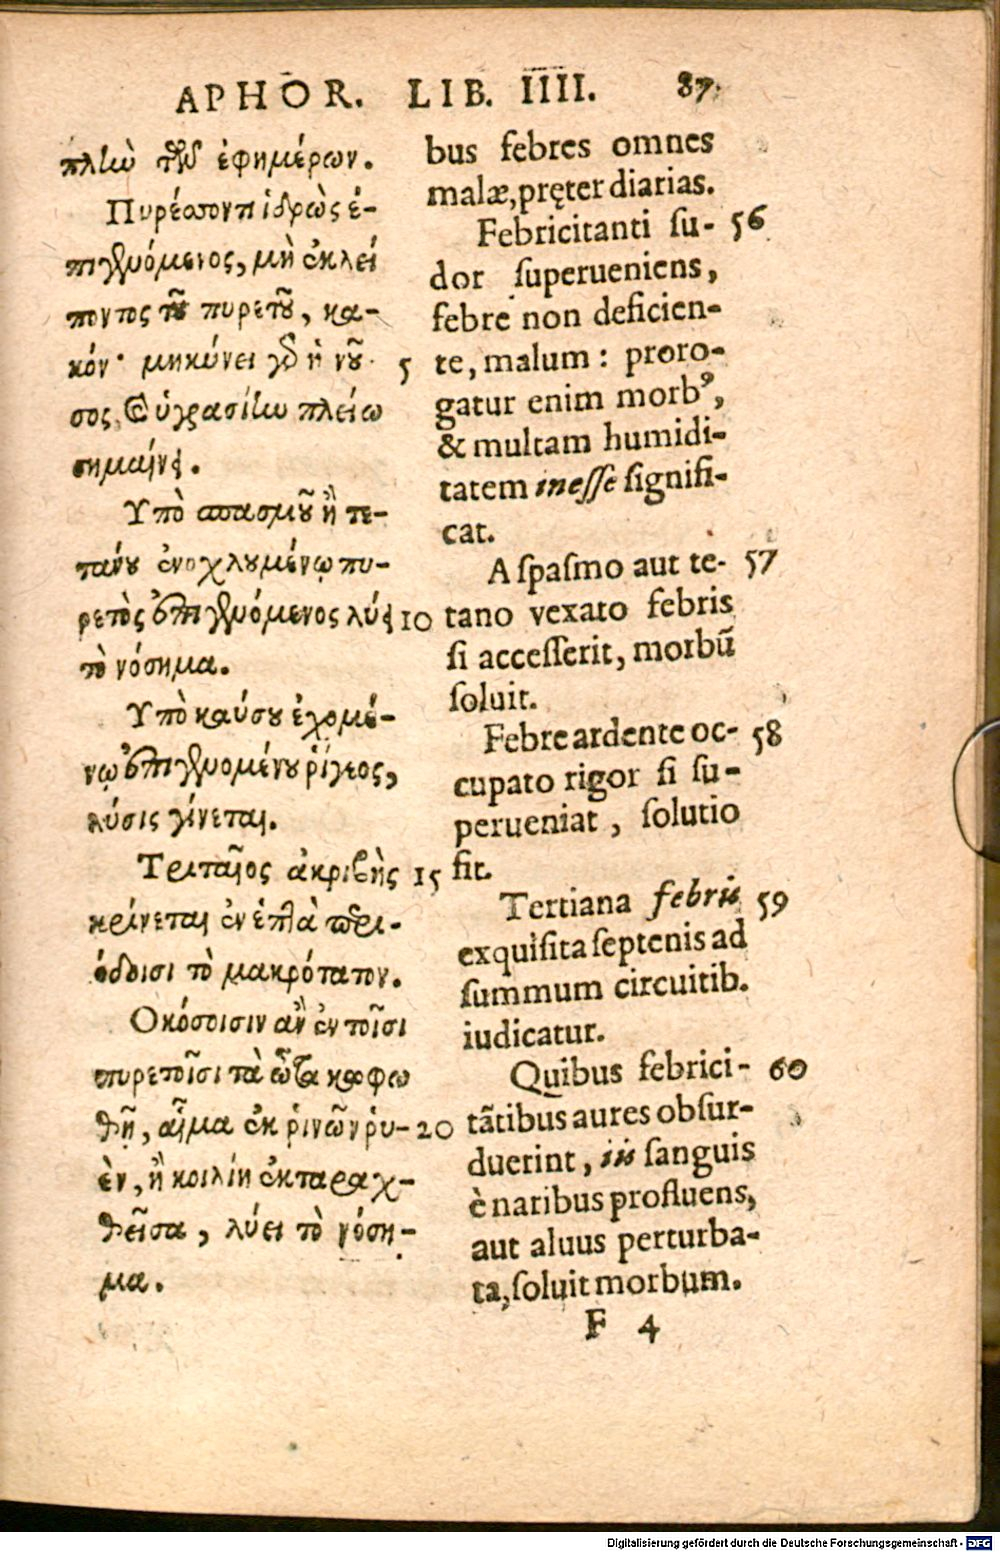 APHOR. LIB. IIII. 87.
πλὴν τῶν ἐφημέρων.
Πυρέσσοντι ἱδρὼς ἐ-
πιγενόμενος, μὴ ἐκλεί
ποντος τοῦ πυρετοῦ, κα-
κόν· μηκύνει γὰρ ἡ νοῦ-
σος, καὶ ὑγρασίην πλείω
σημαίνει.
Υπὸ σπασμοῦ ἢ τε-
τάνου ἐνοχλουμένῳ πυ-
ρετὸς ἐπιγενόμενος λύει
τὸ νόσημα.
Υπὸ καύσου ἐχομέ-
νῳ ἐπιγενομένου ῥίγεος,
λύσις γίνεται.
Τριταῖος ἀκριβὴς
κρίνεται ἐν ἑπτὰ περι-
όδοισι τὸ μακρότατον.
Οκόσοισιν ἂν ἐν τοῖσι
πυρετοῖσι τὰ ὦτα κωφω
θῇ, αἷμα ἐκ ῥινῶν ῥυ-
ὲν, ἢ κοιλίη ἐκταραχ-
θεῖσα, λύει τὸ νόση-
μα.
5
10
15
20
bus febres omnes
malæ, pręter diarias.
Febricitanti su- 56
dor superueniens,
febre non deficien-
te, malum: proro-
gatur enim morbꝰ,
& multam humidi-
tatem inesse signifi-
cat.
A spasmo aut te- 57
tano vexato febris
si accesserit, morbũ
soluit.
Febre ardente oc- 58
cupato rigor si su-
perueniat, solutio
fit.
Tertiana febris 59
exquisita septenis ad
summum circuitib.
iudicatur.
Quibus febrici- 60
tãtibus aures obsur-
duerint, iis sanguis
è naribus profluens,
aut aluus perturba-
ta, soluit morbum.
F 4
Digitalisierung gefördert durch die Deutsche Forschungsgemeinschaft - DFG